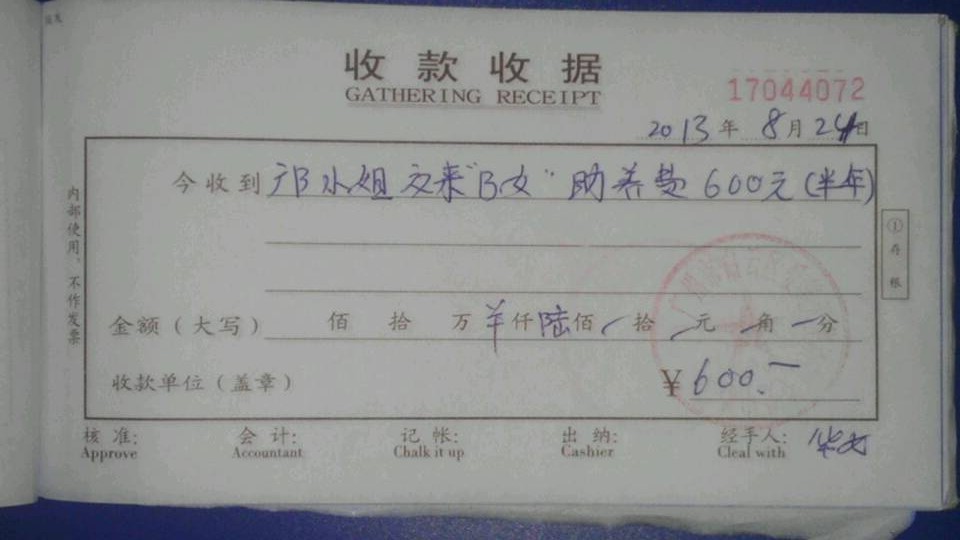 收款收据
GATHERING RECEIPT
17044072
2013年8月24日
今收到邝小姐交来"B女"助养费600元(半年)
金额(大写) 佰 拾 万 羊仟陆佰 拾 元 角 分
收款单位(盖章) ¥600.一
核准: 会计: 记帐: 出纳: 经手人:
Approve Accountant Chalk it up Cashier Cleal with
内部使用、不作发票
①存根